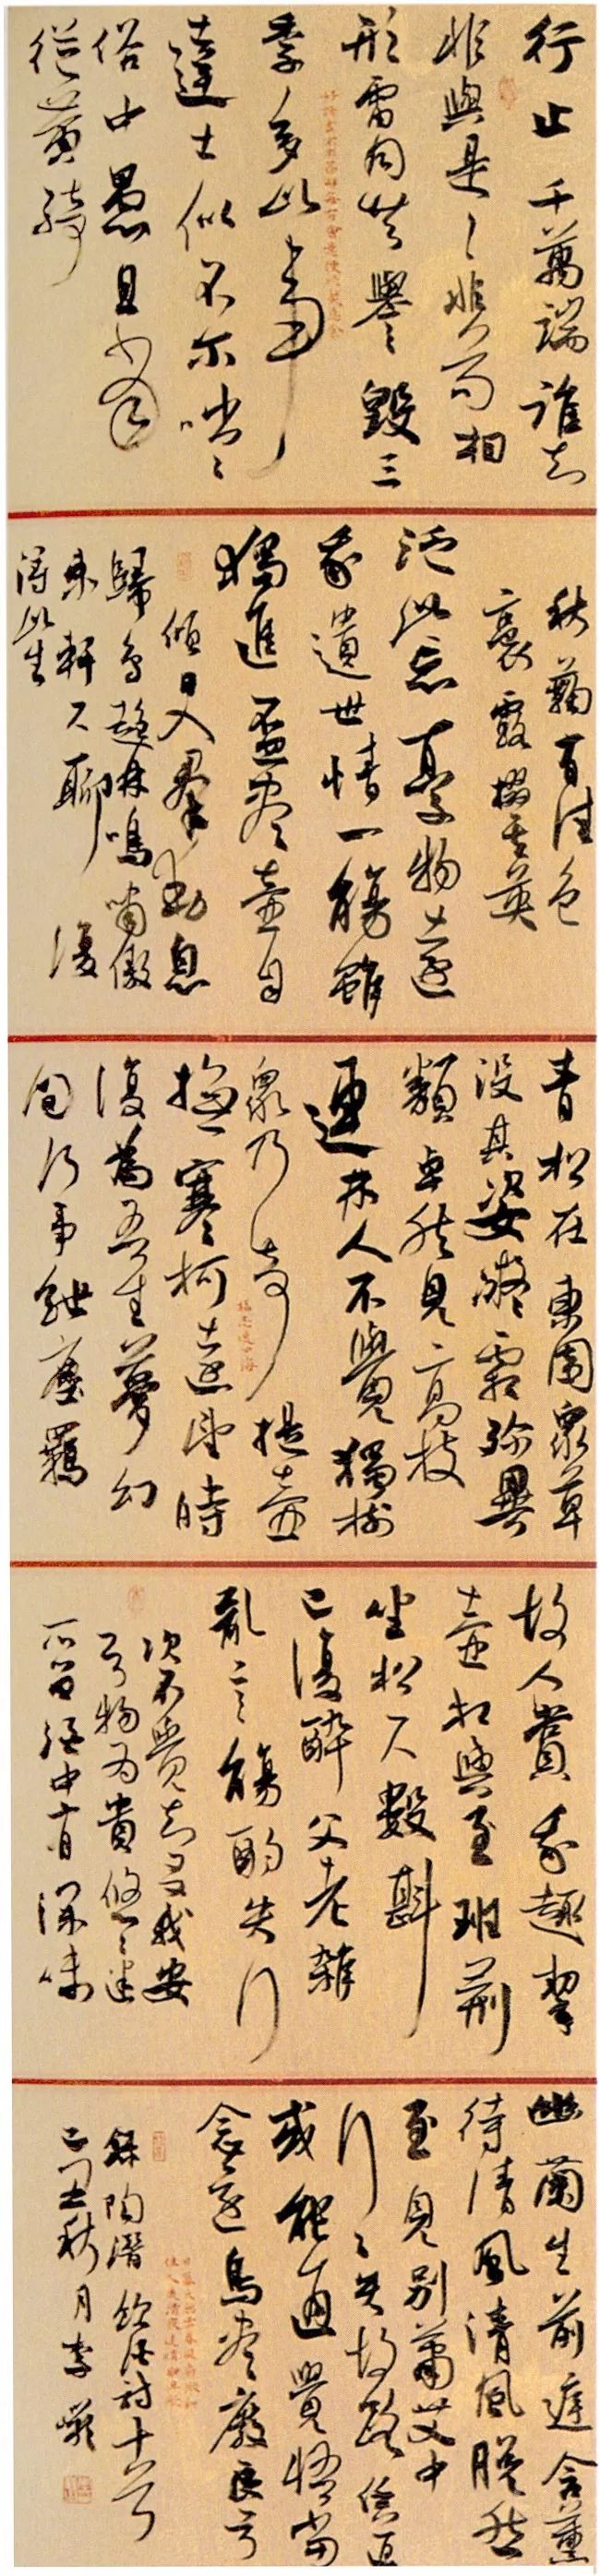 行止千萬端誰知
非與是〻非苟相
形雷同共譽毀三
季多此事
達士似不尔咄〻
俗中愚且當
從黃綺
秋菊有佳色
裛露掇其英
泛此忘憂物遠
我遺世情一觴雖
獨進盃盡壺自
傾日入群動息
歸鳥趨林鳴嘯傲
東軒下聊復
得此生
青松在東園眾草
沒其姿凝霜殄異
類卓然見高枝
連林人不覺獨樹
眾乃奇提壺
撫寒柯遠望時
復為吾生夢幻
間何事紲塵羈
故人賞我趣挈
壺相與至班荊
坐松下數斟
已復醉父老雜
亂言觴酌失行
次不覺知有我安
知物為貴悠〻迷
所留酒中有深味
幽蘭生前庭含薰
待清風清風脫然
至見別蕭艾中
行〻失故路任道
或能通覺悟當
念還鳥盡廢良弓
錄陶潛飲酒詩十首
己丑秋月李